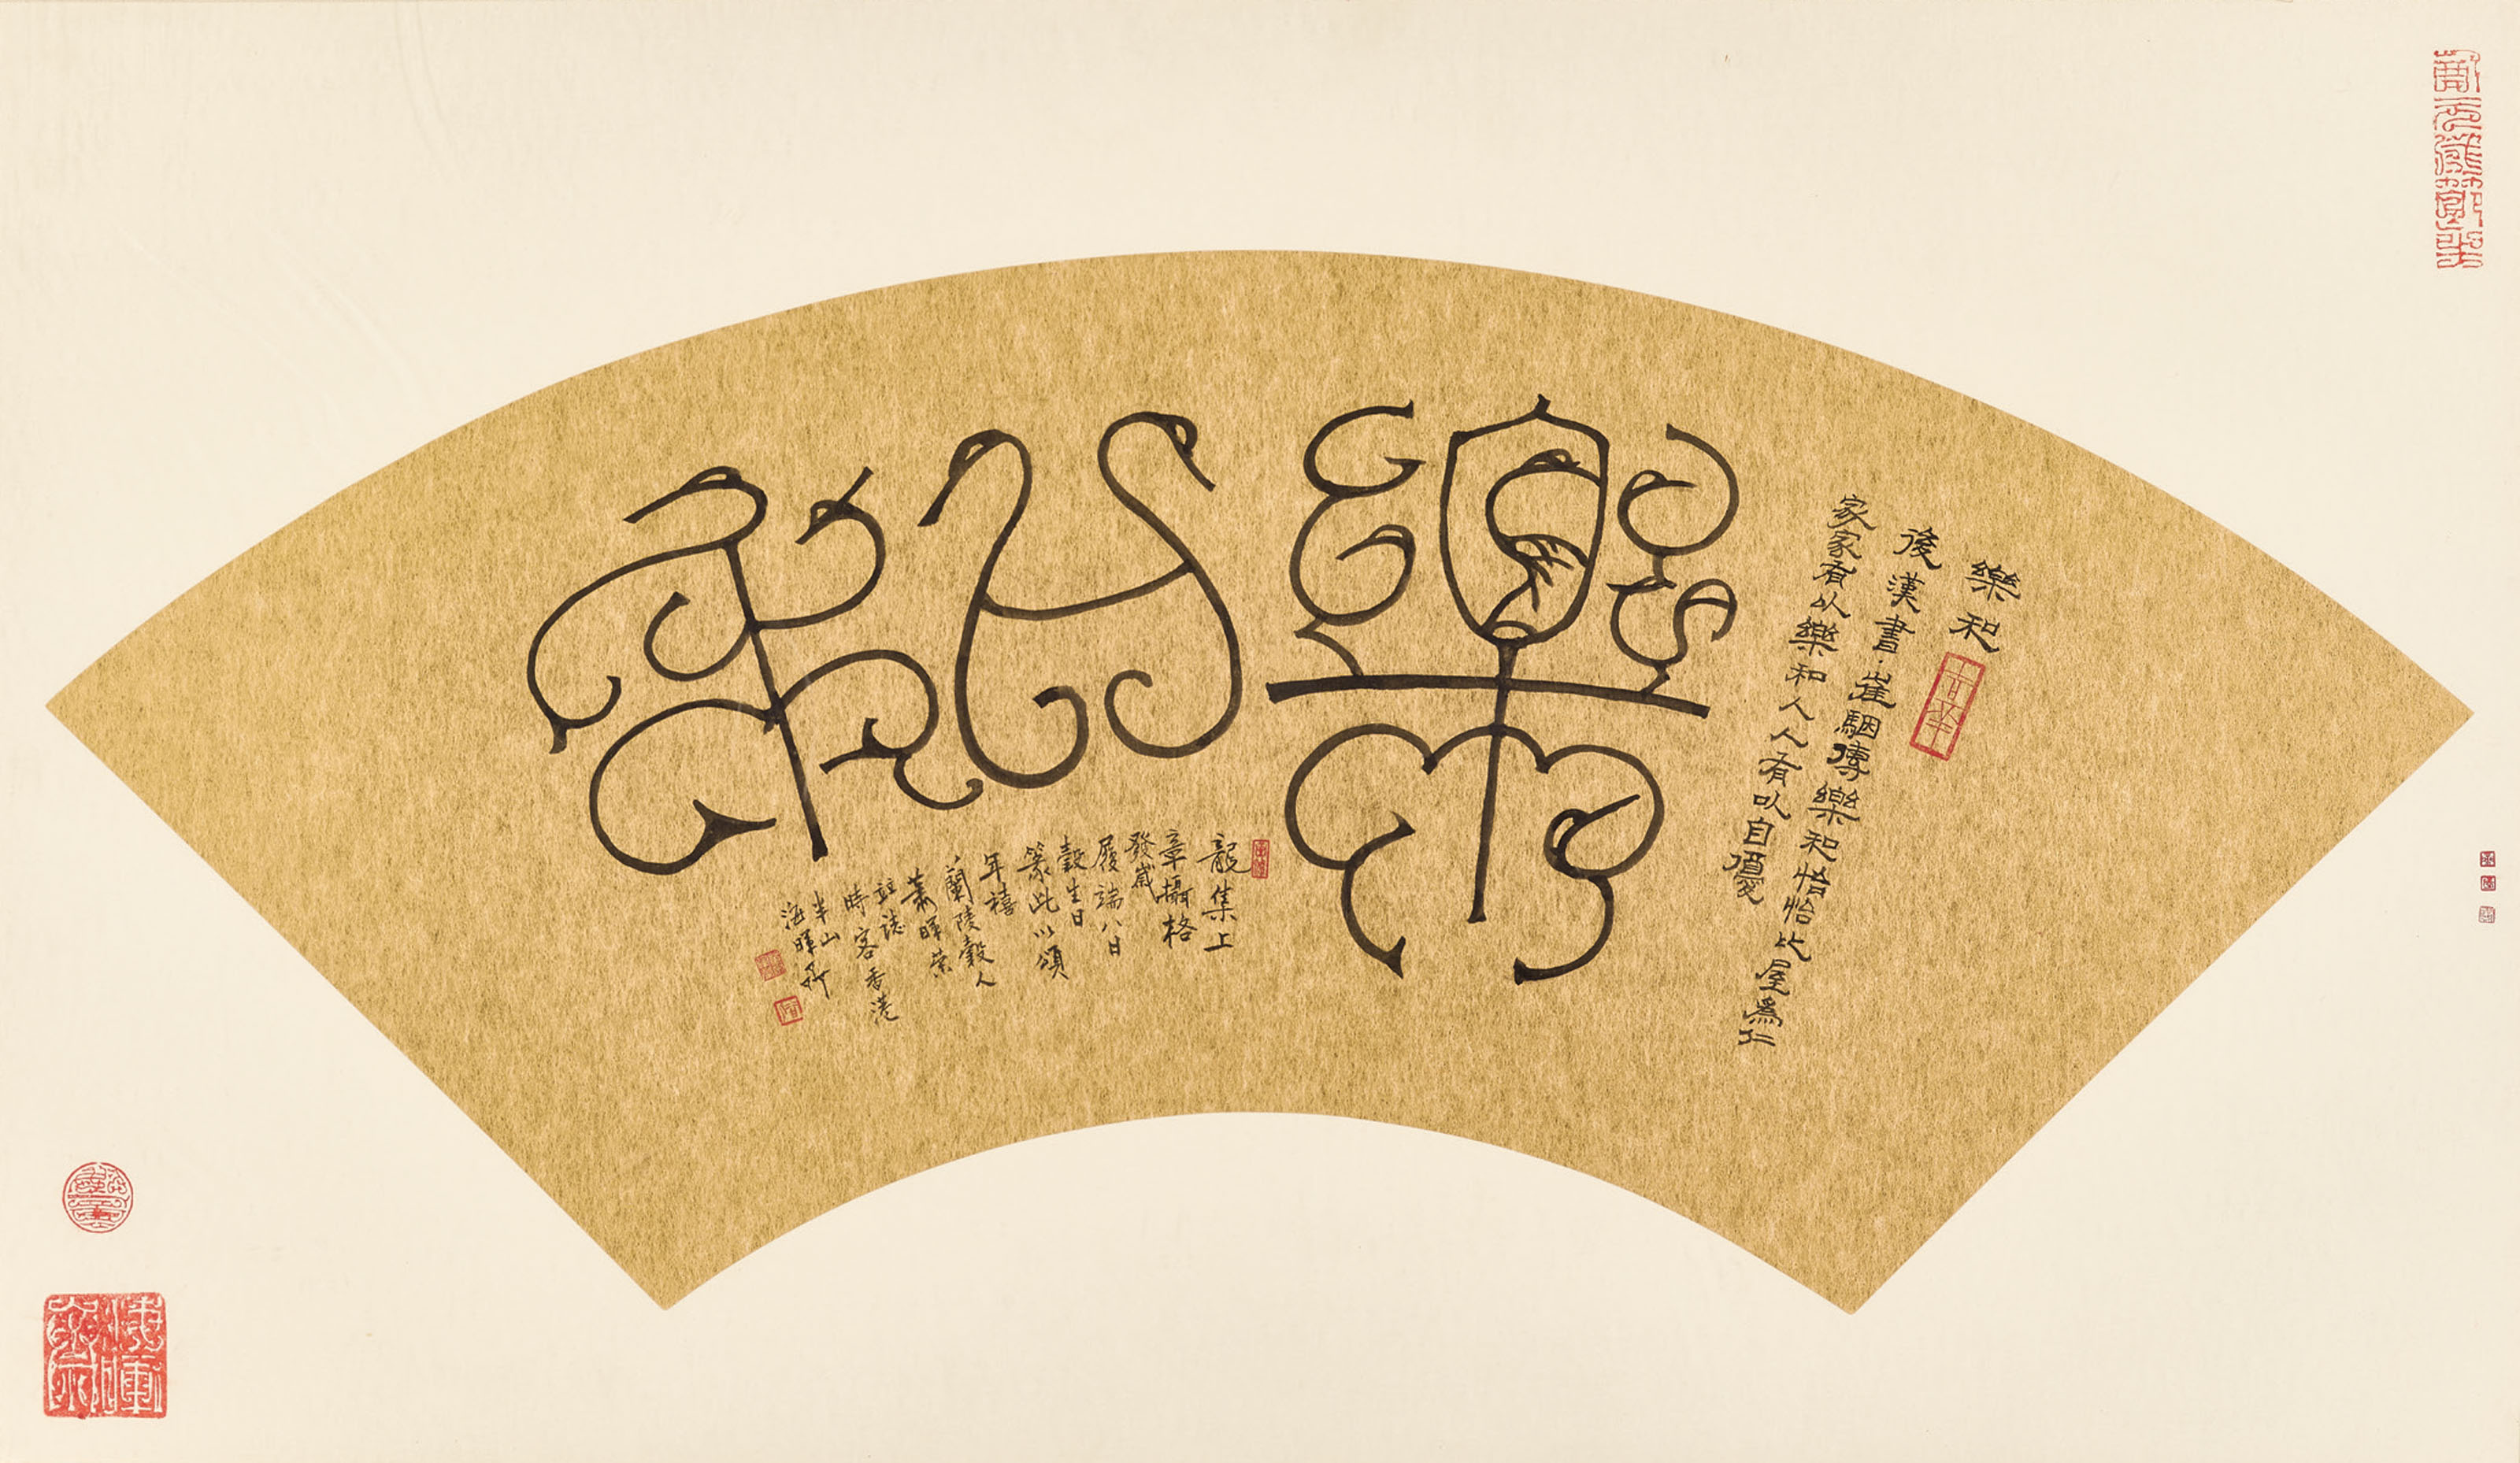 樂和
樂和
後漢書·崔駰傳樂和怡怡比屋為仁
家家有以樂和人人有以自優
龍集上
章攝格
發歲
履端八日
穀生日
篆此以頌
年禧
蘭陵穀人
蕭暉榮
竝誌
時客香港
半山
海暉